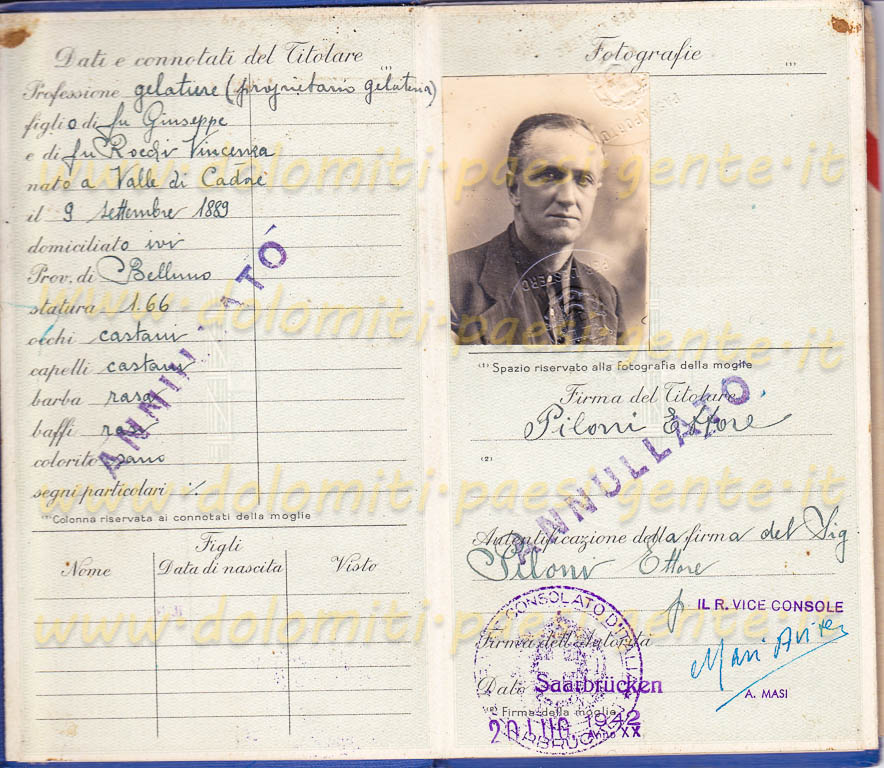 Dati e connotati del Titolare
(1)
Professione gelatiere (proprietario gelateria)
figlio di fu Giuseppe
e di fu Rocchi Vincenza
nato a Valle di Cadore
il 9 settembre 1889
domiciliato ivi
Prov. di Belluno
statura 1.66
occhi castani
capelli castani
barba rasa
baffi rasi
colorito sano
segni particolari %
(1) Colonna riservata ai connotati della moglie
ANNULLATO
Figli
Nome Data di nascita Visto
Fotografie
(1)
(1) Spazio riservato alla fotografia della moglie
Firma del Titolare
Piloni Ettore
(2)
ANNULLATO
Autentificazione della firma del Sig
Piloni Ettore
p IL R. VICE CONSOLE
CONSOLATO D'ITALIA
Firma dell'Autorità
A. MASI
Data Saarbrücken
(2) Firma della moglie
20 LUG. 1942
Anno XX
www.dolomiti-paesi-gente.it
www.dolomiti-paesi-gente.it
www.dolomiti-paesi-gente.it
www.dolomiti-paesi-gente.it